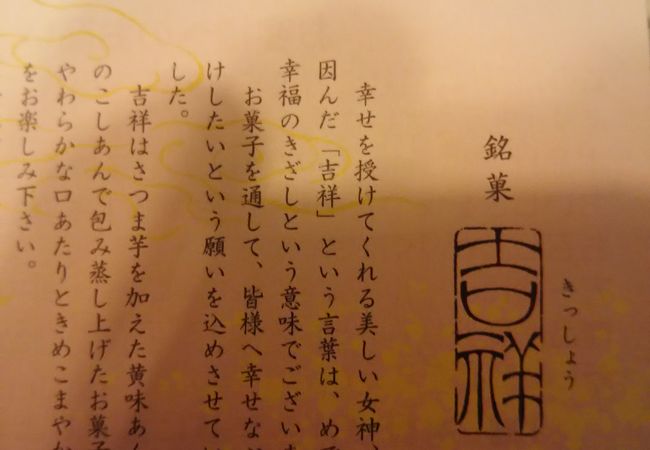 銘菓
吉祥
きっしょう
幸せを授けてくれる美しい女神、
因んだ「吉祥」という言葉は、めで
幸福のきざしという意味でございま
お菓子を通して、皆様へ幸せな
けしたいという願いを込めさせてい
した。
吉祥はさつま芋を加えた黄味あん
のこしあんで包み蒸し上げたお菓子
やわらかな口あたりときめこまやか
をお楽しみ下さい。